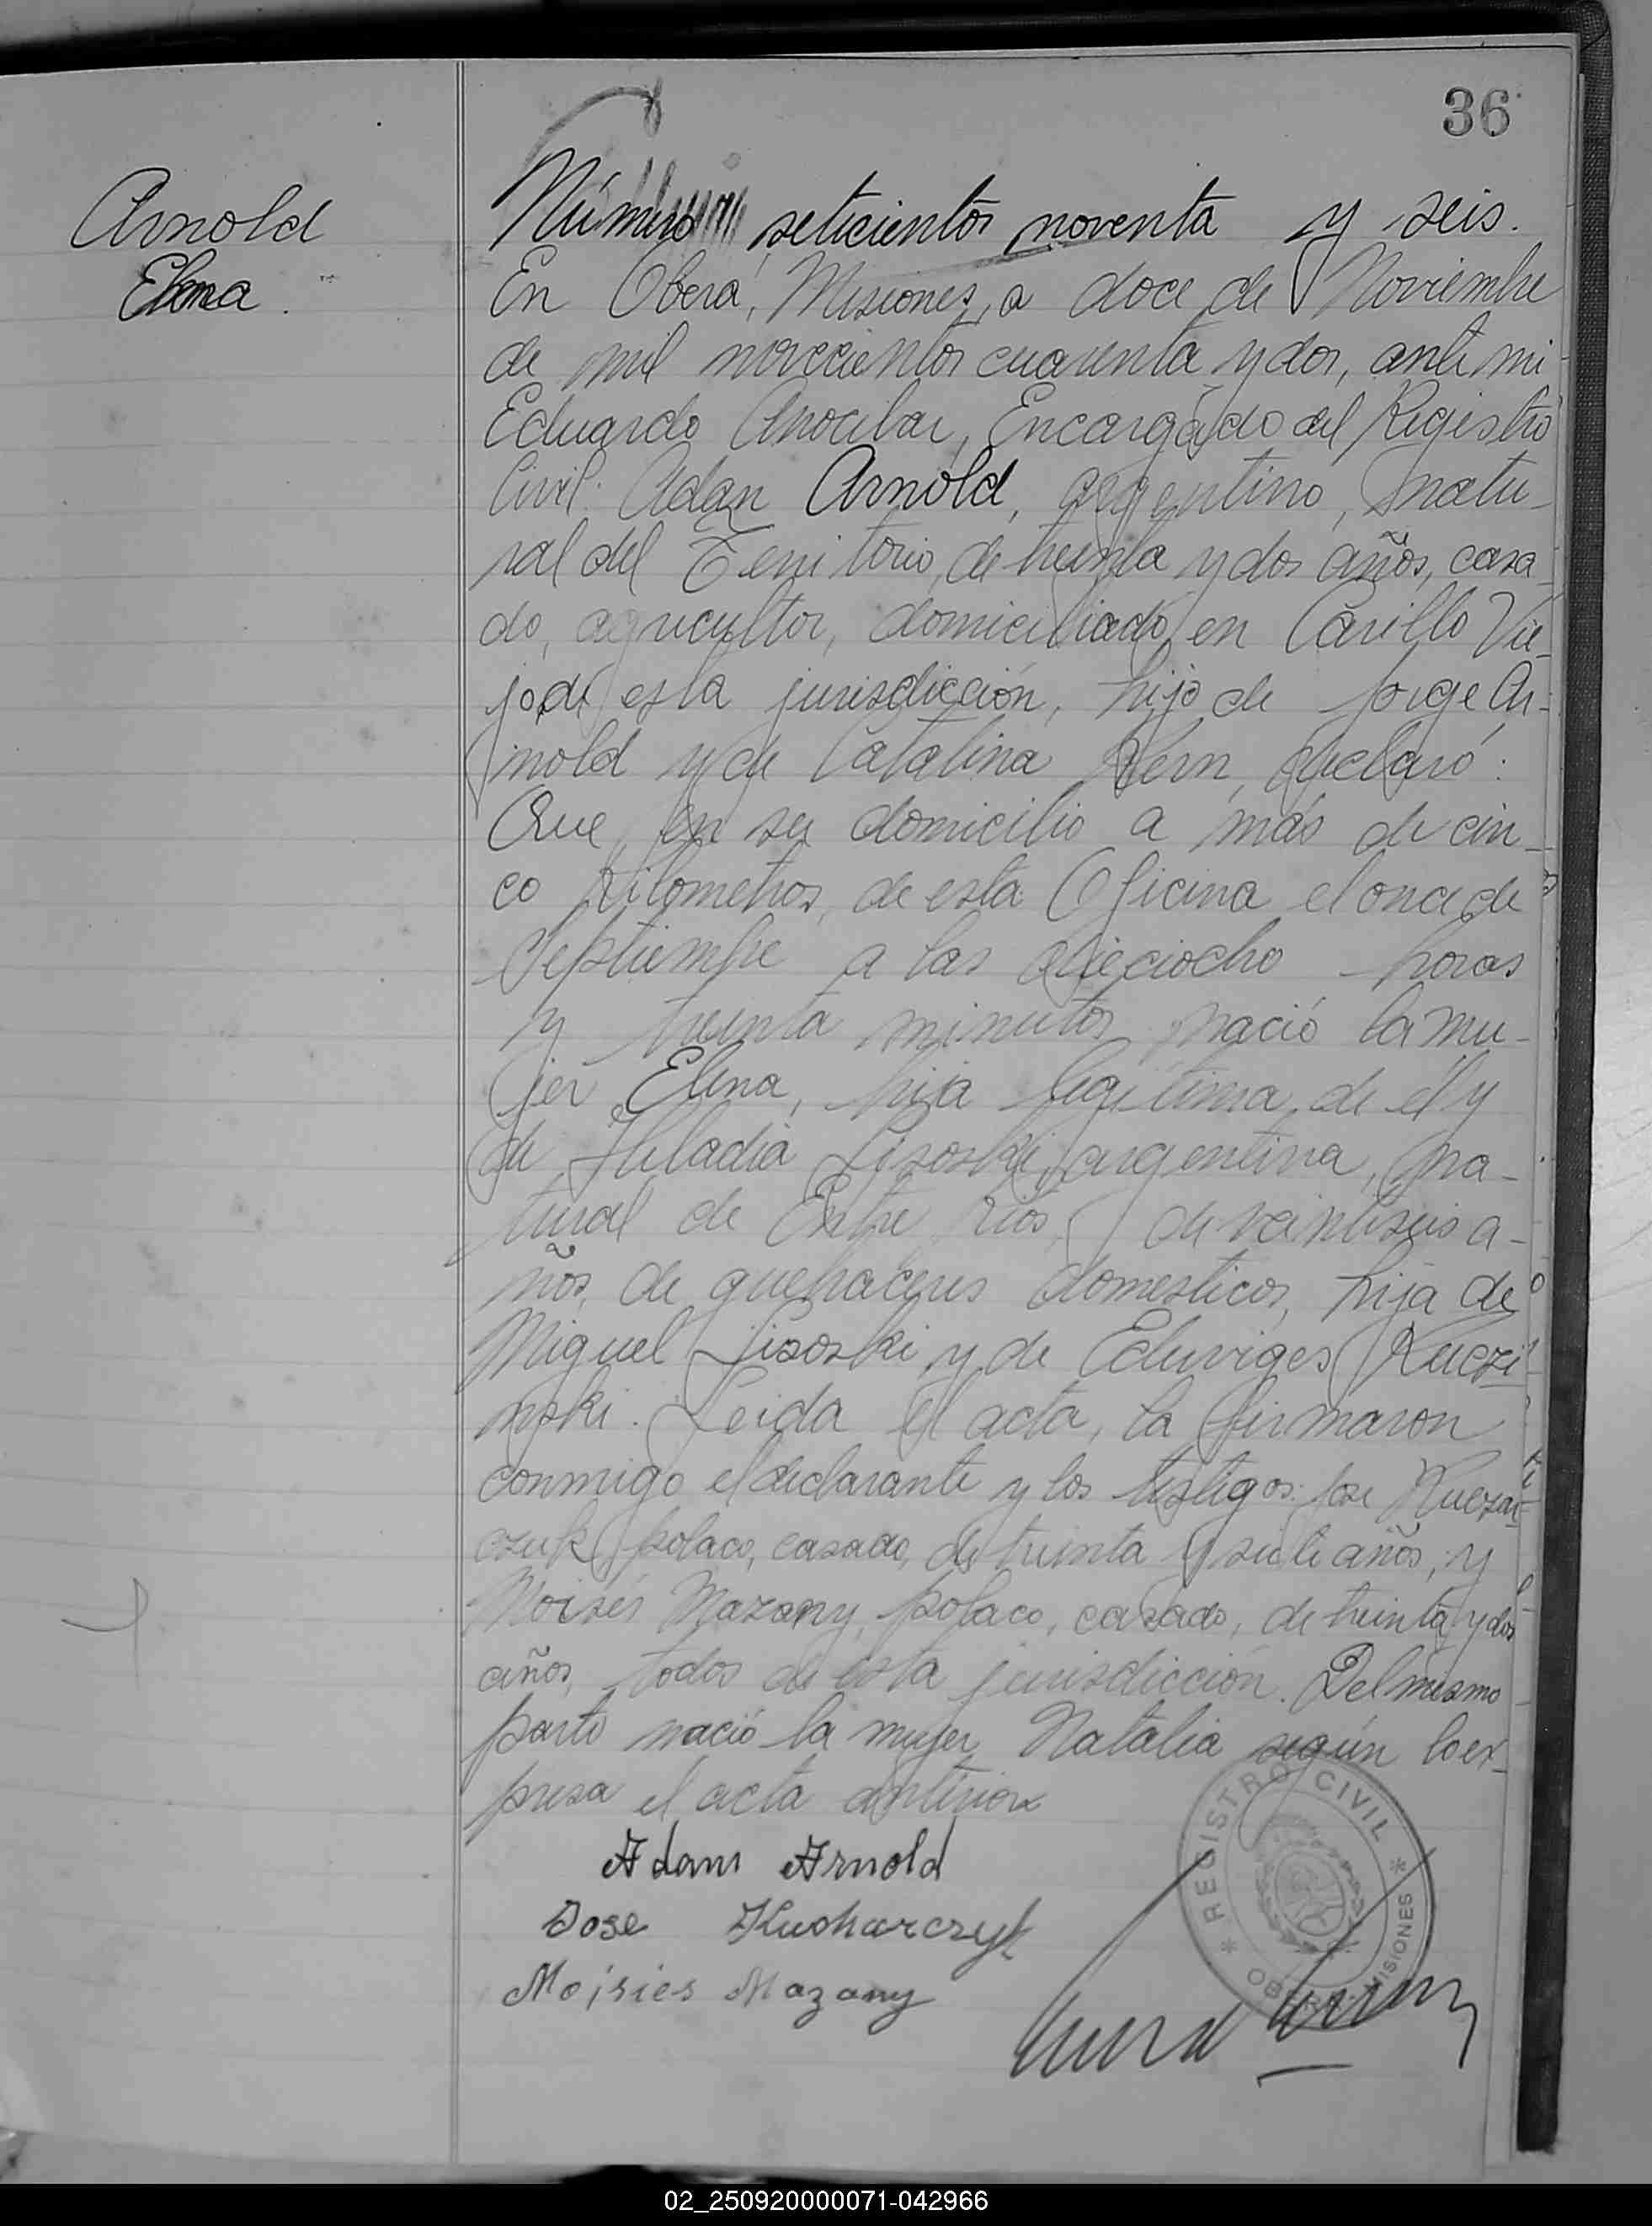 36
Arnold
Elena.
Número seticientos noventa y seis.
En Oberá, Misiones, a doce de Noviembre
de mil novecientos cuarenta y dos, ante mi
Eduardo Anocibar, Encargado del Registro
Civil: Adan Arnold, argentino, natu-
ral del Territorio, de treinta y dos años, casa-
do, agricultor, domiciliado en Carillo Vie-
jo, de esta jurisdicción, hijo de Jorge Ar-
nold y de Catalina Kern, declaró:
Que en su domicilio a más de cin-
co kilometros, de esta Oficina el once de
Septiembre a las dieciocho horas
y treinta minutos nació la mu-
jer Elena, hija legitima, de él y
de Heladia Lisoski, argentina, na-
tural de Entre Rios, de veintiseis a-
ños, de quehaceres domesticos, hija de
Miguel Lisoski y de Eduviges Kuczi
nski. Leida el acta, la firmaron
conmigo el declarante y los testigos: Jose
czuk polaco, casado, de treinta y siete años, y
Moisés Mazany, polaco, casado, de treinta y dos
años, todos de esta jurisdicción. Del mismo
parto nació la mujer Natalia según lo ex-
presa el acta anterior
Adam Arnold
Jose Kucharczyk
Moisies Mazany
* REGISTRO CIVIL *
OBERÁ MISIONES
02_250920000071-042966